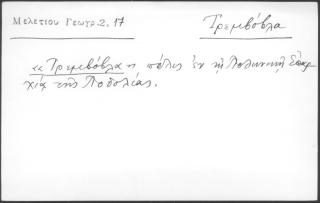 Μελετίου Γεωγρ. 2, 17
Τρεμβόβλα
«Τρεμβόβλα η πόλις ἐν τῇ Πολωνικῇ Ἐπαρ
χία τῆς Ποδολίας.